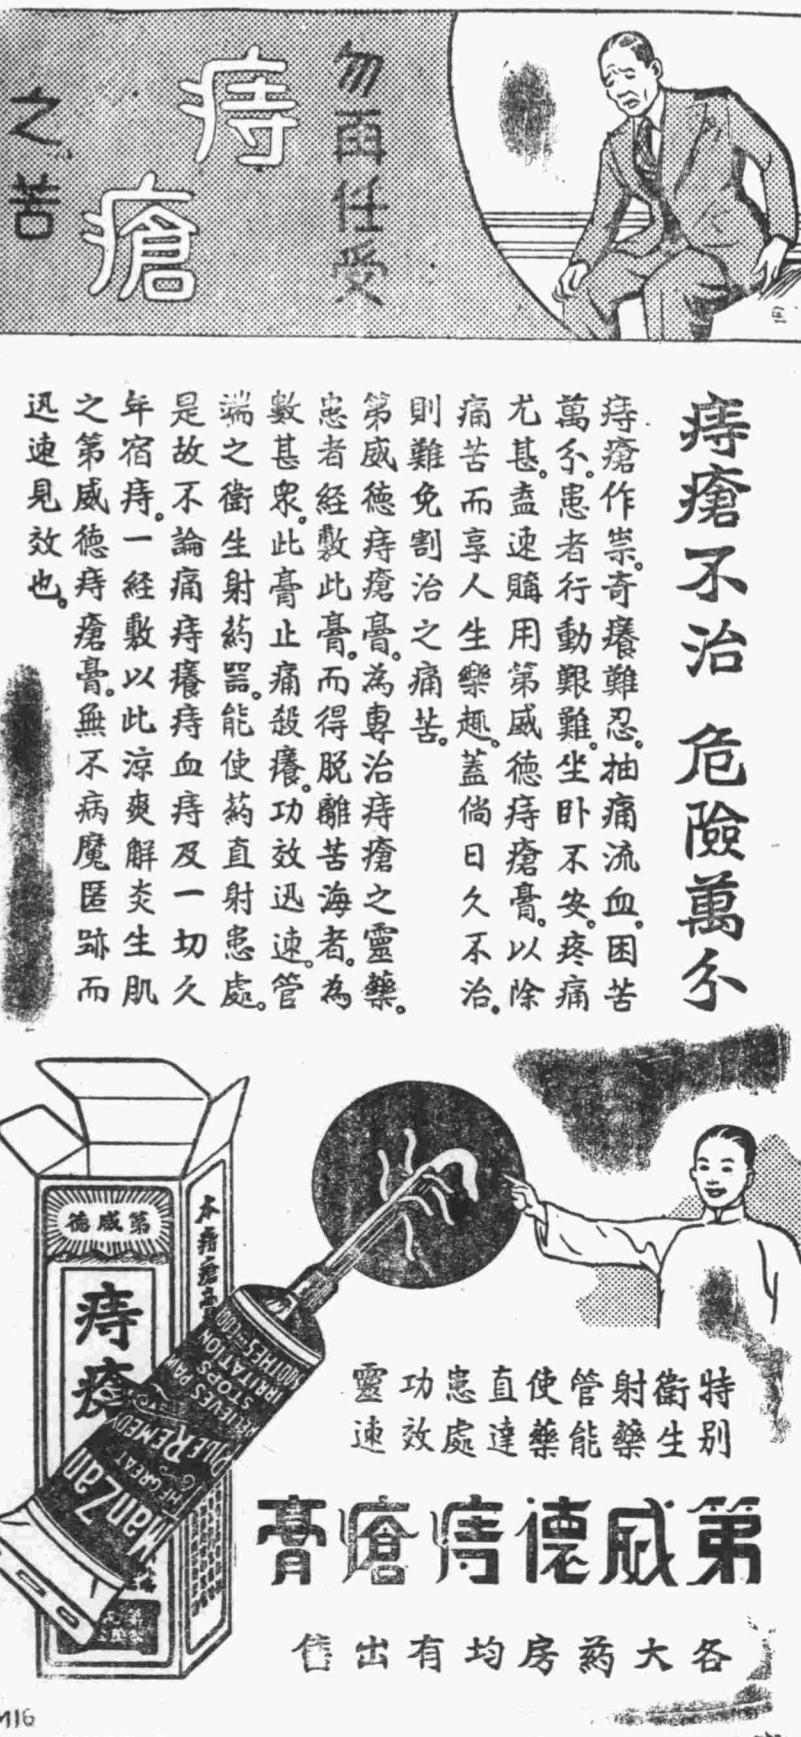 勿再任受
痔瘡
之苦
痔瘡不治 危險萬分
痔瘡作祟。奇癢難忍。抽痛流血。困苦
萬分。患者行動艱難。坐卧不安。疼痛
尤甚。盍速購用第威德痔瘡膏。以除
痛苦而享人生樂趣。蓋倘日久不治。
則難免割治之痛苦。
第威德痔瘡膏。為專治痔瘡之靈藥。
患者經敷此膏。而得脫離苦海者。為
數甚衆。此膏止痛殺癢。功效迅速。管
端之衛生射葯器。能使葯直射患處。
是故不論痛痔癢痔血痔及一切久
年宿痔。一經敷以此涼爽解炎生肌
之第威德痔瘡膏。無不病魔匿跡而
迅速見效也。
第威德
痔瘡
本痔瘡膏
ManZan
THE GREAT
PILE REMEDY
RELIEVES PAIN
STOPS
IRRITATION
特别
衛生
射藥
管能
使藥
直達
患處
功效
靈速
第威德痔瘡膏
各大葯房均有出售
M16